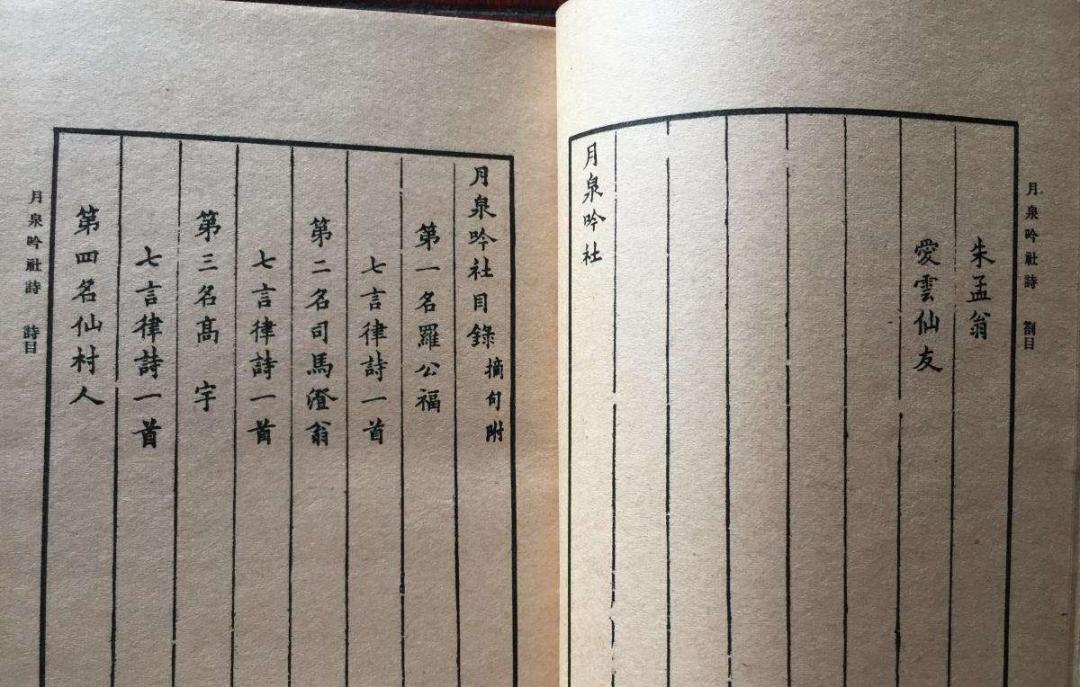 月泉吟社詩 劄目
朱孟翁
愛雲仙友
月泉吟社
月泉吟社目錄 摘句附
第一名羅公福
七言律詩一首
第二名司馬澄翁
七言律詩一首
第三名高 宇
七言律詩一首
第四名仙村人
月泉吟社詩 詩目